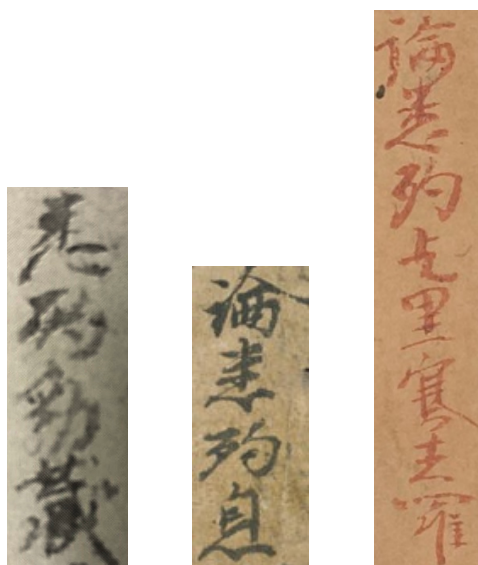 悉殉勃藏
論悉殉息
論悉殉乞里塞去羅